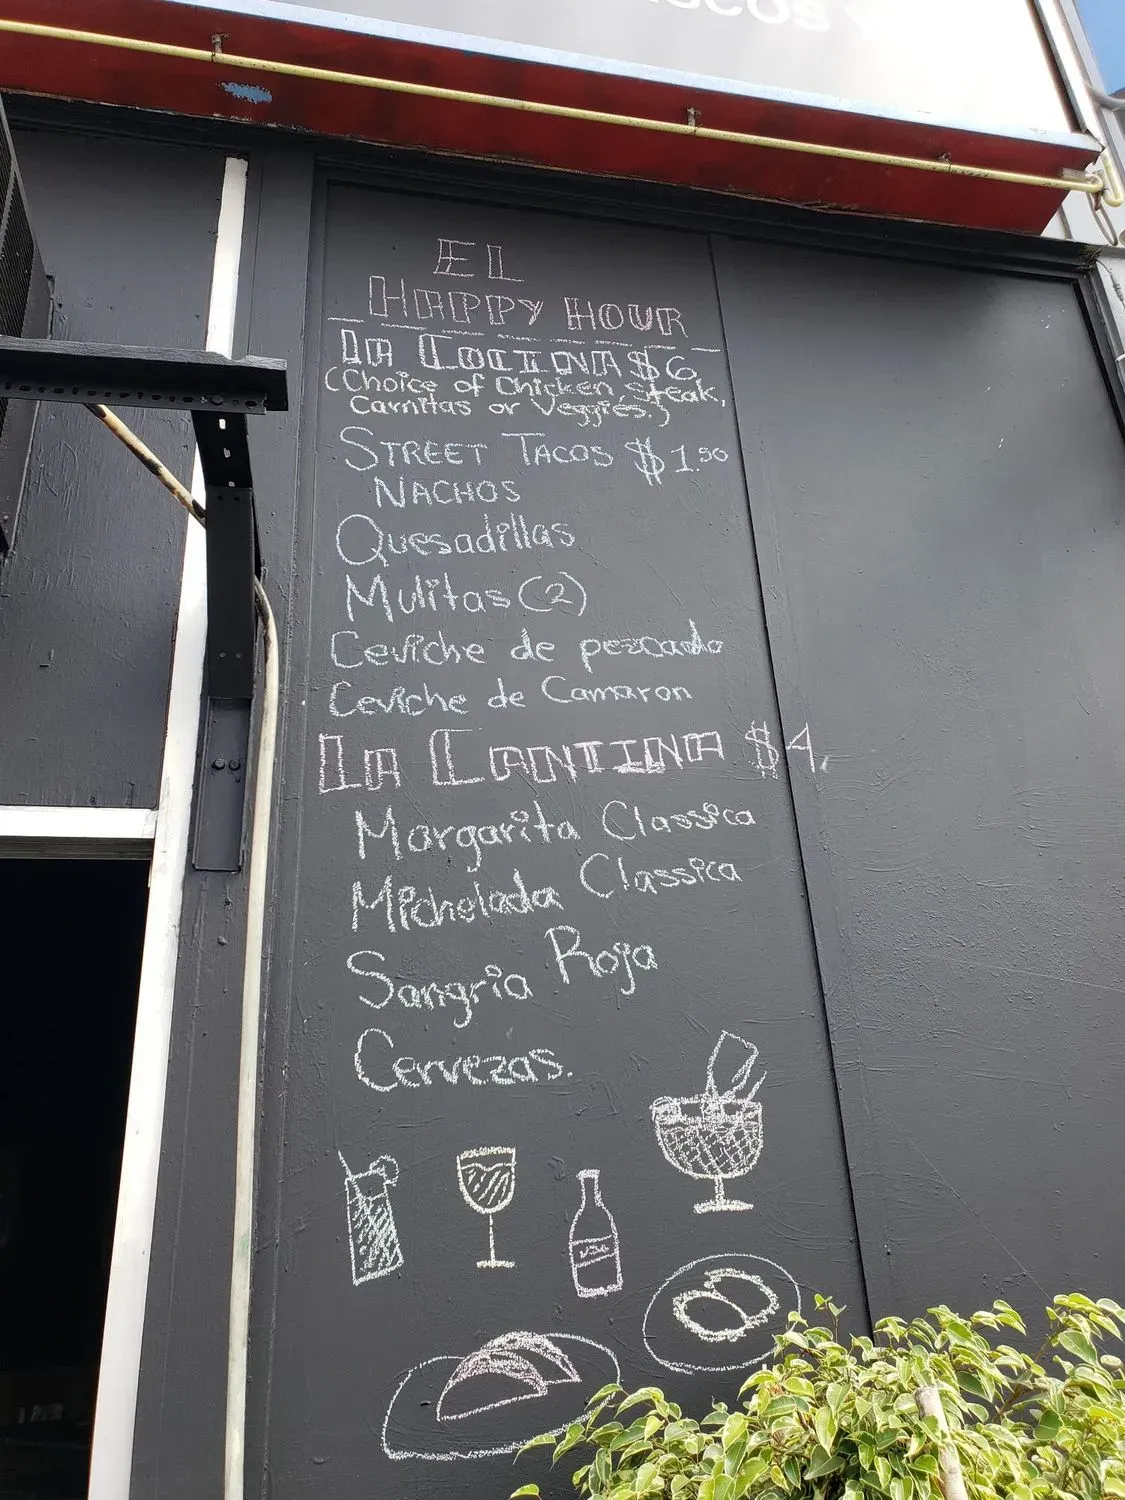 EL
HAPPY HOUR
LA COCINA $6
(Choice of Chicken, Steak,
Carnitas or Veggies.)
STREET TACOS $1.50
NACHOS
Quesadillas
Mulitas (2)
Ceviche de pezcado
Ceviche de Camaron
LA CANTINA $4.
Margarita Classica
Michelada Classica
Sangria Roja
Cervezas.